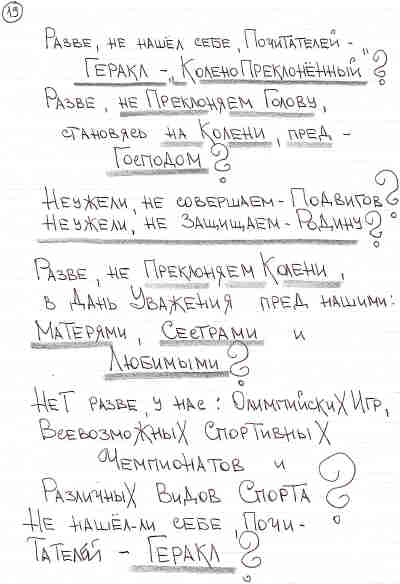 19
Разве, не нашёл себе, Почитателей -
Геракл - "КоленоПреклонённый"?
Разве, не Преклоняем Голову,
становясь на Колени, пред -
Господом?
Неужели, не совершаем - Подвигов?
Неужели, не Защищаем - Родину?
Разве, не Преклоняем Колени,
в Дань Уважения пред нашими:
Матерями, Сестрами и
Любимыми?
Нет разве, у нас: Олимпийских Игр,
Всевозможных Спортивных
Чемпионатов и
Различных Видов Спорта?
Не нашёл-ли себе, Почи-
тателей - Геракл?